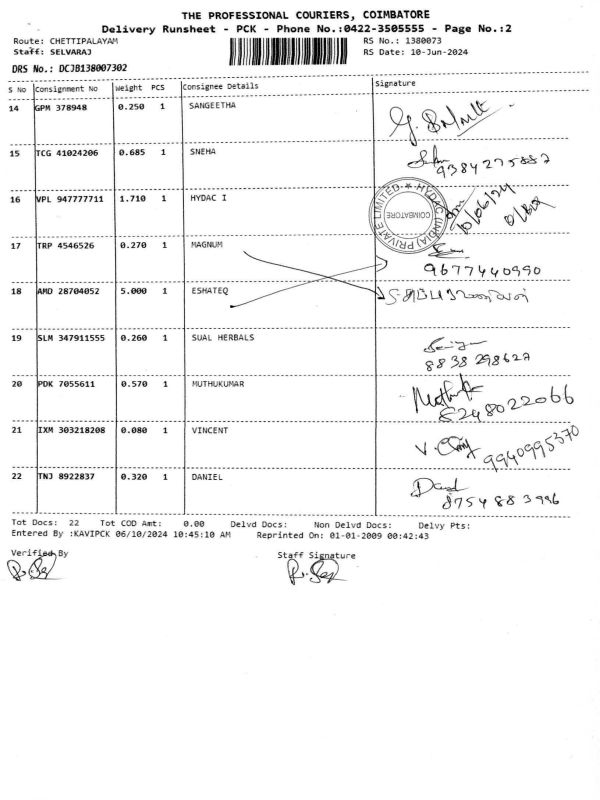 THE PROFESSIONAL COURIERS, COIMBATORE
Delivery Runsheet - PCK - Phone No.:0422-3505555 - Page No.:2
Route: CHETTIPALAYAM RS No.: 1380073
Staff: SELVARAJ RS Date: 10-Jun-2024
DRS No.: DCJB138007302
S No Consignment No Weight PCS Consignee Details Signature
14 GPM 378948 0.250 1 SANGEETHA
15 TCG 41024206 0.685 1 SNEHA
9384275887
16 VPL 947777711 1.710 1 HYDAC I
HYDAC (INDIA) PRIVATE LIMITED ★
COIMBATORE
10/06/24
17 TRP 4546526 0.270 1 MAGNUM
9677440990
18 AMD 28704052 5.000 1 ESHATEQ
19 SLM 347911555 0.260 1 SUAL HERBALS
8838298627
20 PDK 7055611 0.570 1 MUTHUKUMAR
8248022066
21 IXM 303218208 0.080 1 VINCENT
9940995370
22 TNJ 8922837 0.320 1 DANIEL
8754883996
Tot Docs: 22 Tot COD Amt: 0.00 Delvd Docs: Non Delvd Docs: Delvy Pts:
Entered By :KAVIPCK 06/10/2024 10:45:10 AM Reprinted On: 01-01-2009 00:42:43
Verified By Staff Signature